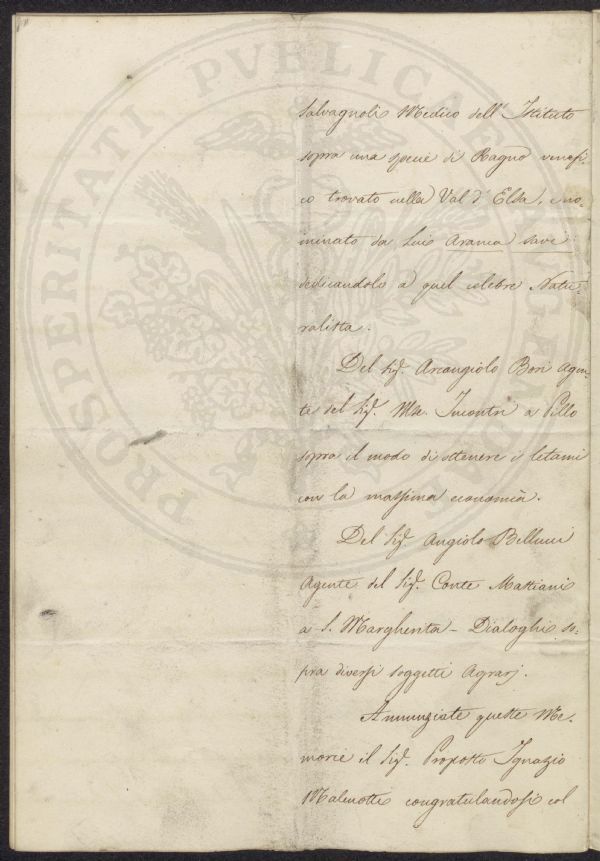 PROSPERITATI PVBLICAE AVGENDAE
Salvagnoli Medico dell' Istituto
sopra una specie di Ragno venefi-
co trovato nella Val d' Elsa, e no-
minato da Lui Aranea Savi
dedicandolo a quel celebre Natu-
ralista.
Del Sig. Arcangiolo Bori Agen-
te del Sig. Mse. Incontri a Pillo
sopra il modo di ottenere i letami
con la massima economia.
Del Sig. Angiolo Bellucci
Agente del Sig. Conte Mastiani
a S. Margherita - Dialoghi so-
pra diversi soggetti Agrarj.
Annunziate queste Me-
morie il Sig. Proposto Ignazio
Malenotti congratulandosi col